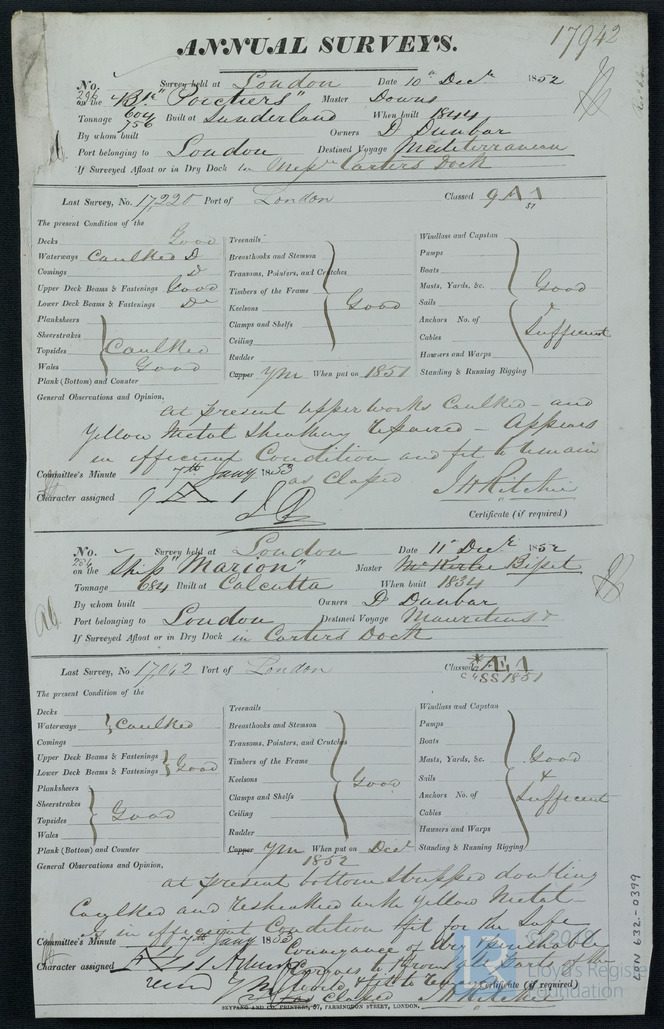 17942
ANNUAL SURVEYS.
No. 296 Survey held at London Date 10th Decr 1852
on the "Poictiers" Master Downs
Tonnage 604 756 Built at Sunderland When built 1844
By whom built Owners D Dunbar
Port belonging to London Destined Voyage Mediterranean
If Surveyed Afloat or in Dry Dock in Messrs Carters Dock
Last Survey, No. 17,225 Port of London Classed 9 A 1
51
The present Condition of the
Decks Good
Waterways Caulked
Comings
Upper Deck Beams & Fastenings Good
Lower Deck Beams & Fastenings Do
Planksheers
Sheerstrakes
Topsides Caulked
Wales Good
Plank (Bottom) and Counter
Treenails
Breasthooks and Stemson
Transoms, Pointers, and Crutches
Timbers of the Frame
Keelsons Good
Clamps and Shelfs
Ceiling
Rudder
Copper YM When put on 1851
Windlass and Capstan
Pumps
Boats
Masts, Yards, &c. Good
Sails &
Anchors No. of Sufficient
Cables
Hawsers and Warps
Standing & Running Rigging
General Observations and Opinion,
at present upper works Caulked - and
Yellow Metal Sheathing repaired - Appears
in efficient Condition and fit to remain
as Classed
Committee's Minute 7th Jany 1853
Character assigned 9 A 1
J H Ritchie
Certificate (if required)
No. Survey held at London Date 11th Decr. 1852
on the Ship "Marion" Master Bisset
Tonnage 684 Built at Calcutta When built 1834
By whom built Owners D Dunbar
Port belonging to London Destined Voyage Mauritius &
If Surveyed Afloat or in Dry Dock in Carters Dock
Last Survey, No 17042 Port of London Classed *Æ 1
SS 1851
The present Condition of the
Decks
Waterways Caulked
Comings
Upper Deck Beams & Fastenings
Lower Deck Beams & Fastenings Good
Planksheers
Sheerstrakes
Topsides Good
Wales
Plank (Bottom) and Counter
Treenails
Breasthooks and Stemson
Transoms, Pointers, and Crutches
Timbers of the Frame
Keelsons Good
Clamps and Shelfs
Ceiling
Rudder
Copper YM When put on Decr
1852
Windlass and Capstan
Pumps
Boats
Masts, Yards, &c. Good
Sails &
Anchors No. of Sufficient
Cables
Hawsers and Warps
Standing & Running Rigging
General Observations and Opinion,
at present bottom stripped doubling
Caulked and resheathed with Yellow Metal -
is in efficient Condition & fit for the Safe
Conveyance of dry & perishable
Cargoes to & from all parts of the
World & fit to
as Classed
Committee's Minute 7th Jany 1853
Character assigned
J H Ritchie
Certificate (if required)
SKYPANG AND CO. PRINTERS, 57, FARRINGDON STREET, LONDON.
LON 632-0399
© 2019
Lloyd's Register
Foundation